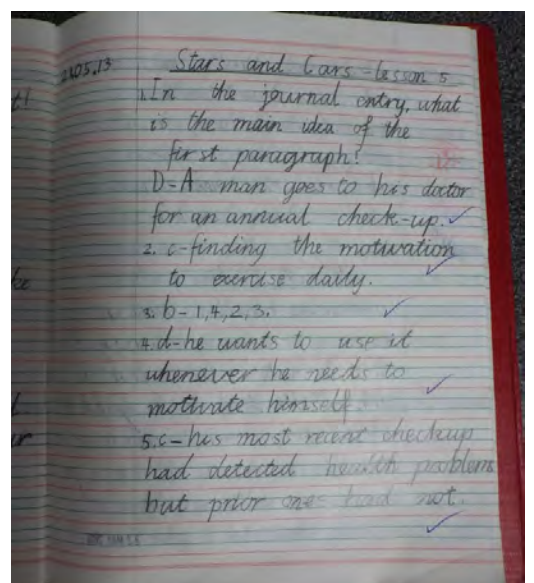 21.05.13
Stars and Cars - lesson 5
1. In the journal entry, what
is the main idea of the
first paragraph?
D-A man goes to his doctor
for an annual check-up.
2. c-finding the motivation
to exercise daily.
3. b-1,4,2,3.
4. d-he wants to use it
whenever he needs to
motivate himself.
5. c-his most recent checkup
had detected health problem
but prior ones had not.